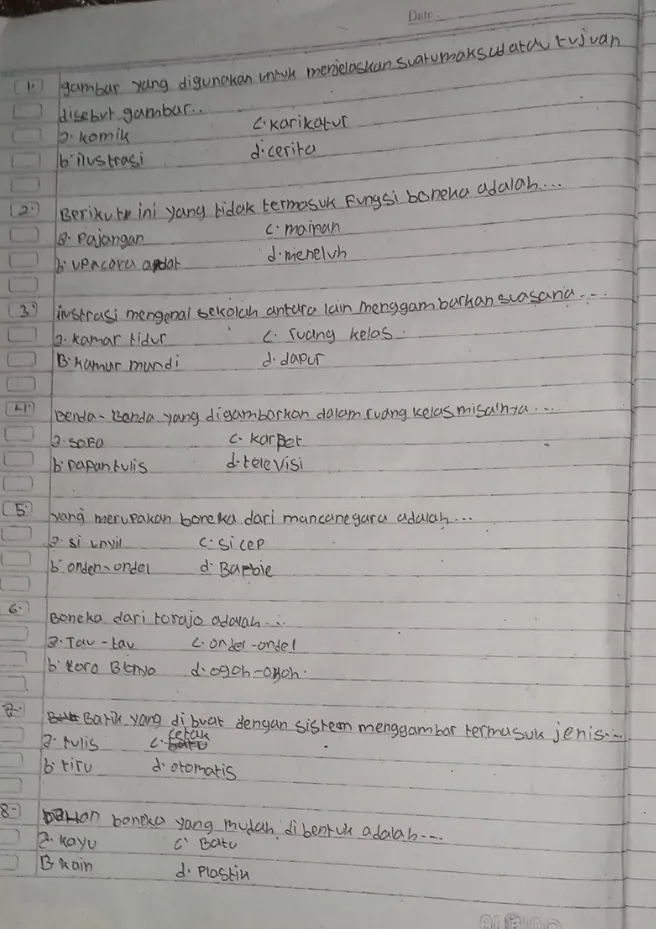 Date:
1. gambar yang digunakan untuk menjelaskan suatu maksud atau tujuan
disebut gambar..
a. komik c. karikatur
b. ilustrasi d. cerita
2. Berikut ini yang tidak termasuk Fungsi boneka adalah...
a. Pajangan c. mainan
b. upacara adat d. meneluh
3. ilustrasi mengenai sekolah antara lain menggambarkan suasana...
a. kamar tidur c. ruang kelas.
B. kamar mandi d. dapur
4. Benda-Benda yang digambarkan dalam ruang kelas misalnya...
a. soFa c. karpet
b. papan tulis d. televisi
5. yang merupakan boneka dari mancanegara adalah...
a. si unyil c. si cep
b. onden-ondel d. Barbie
6. Boneka dari toraja adalah...
a. Tau-tau c. onder-ondel
b. d. ogoh-ogoh.
7. Batik yang dibuat dengan sistem menggambar termasuk jenis...
a. tulis c. cetak
b. tiru d. otomatis
8. bahan boneka yang mudah dibentuk adalah...
a. kayu c. Batu
B kain d. Plastik